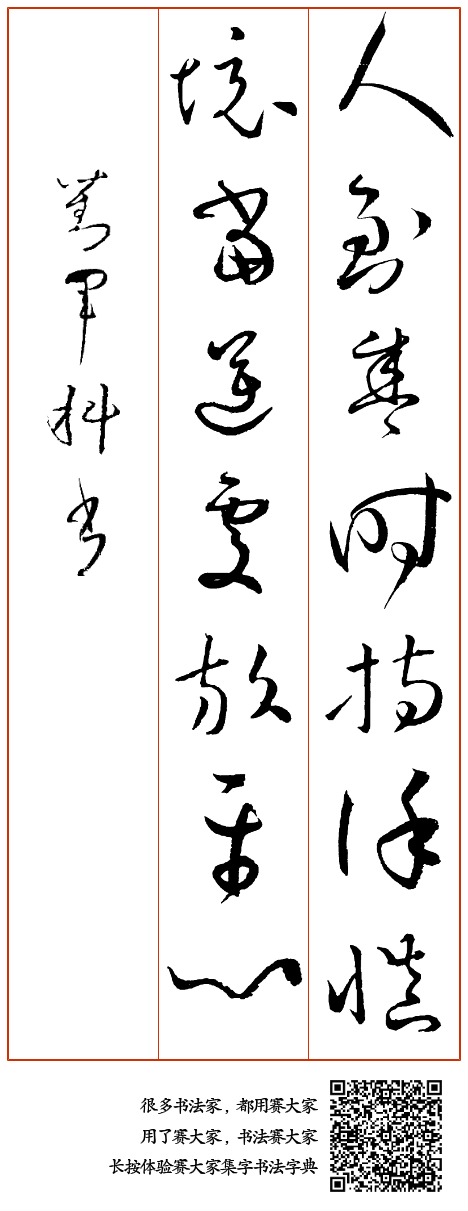 人到喜时持谨慎
境当逆处放平心
刘军科书
很多书法家，都用赛大家
用了赛大家，书法赛大家
长按体验赛大家集字书法字典